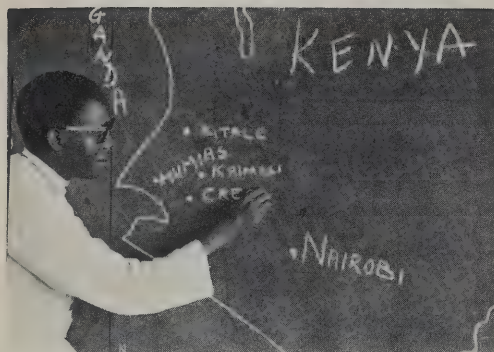 GANDA
KENYA
• KITALE
• MUMIAS
• KAIMOSI
• CRE
• NAIROBI